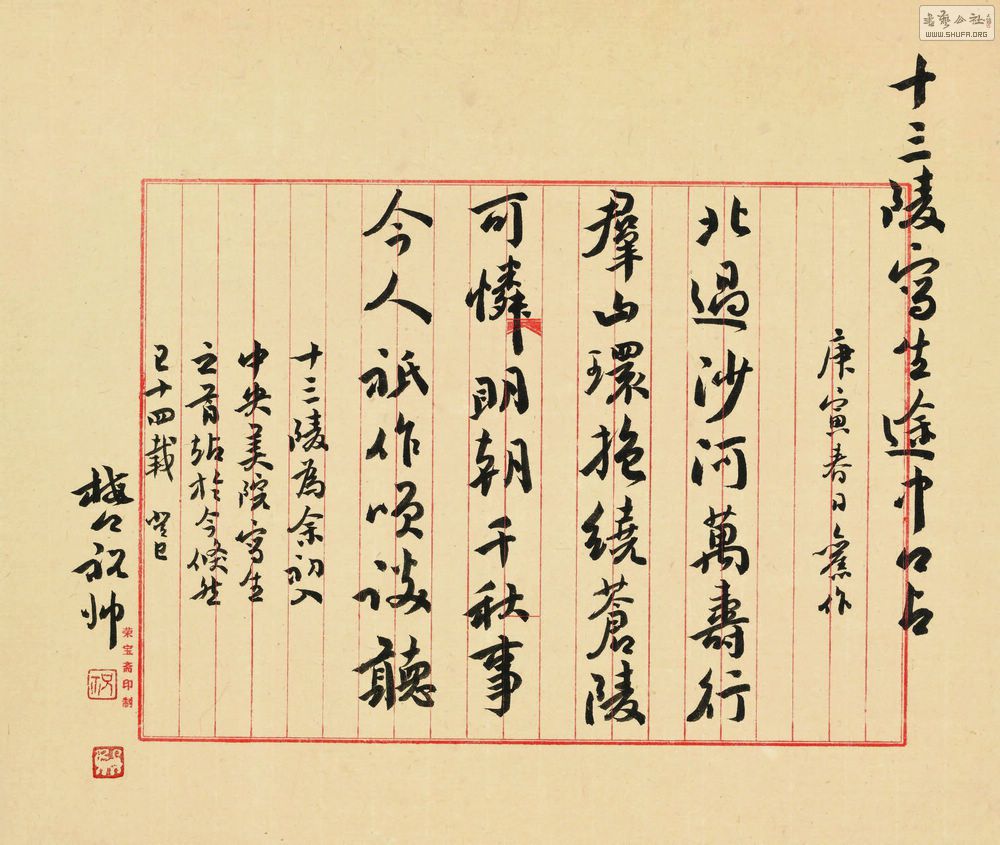 十三陵寫生途中口占
庚寅春日舊作
北過沙河萬壽行
羣山環抱繞蒼陵
可憐明朝千秋事
今人祇作笑談聽
十三陵為余初入
中央美院寫生
之首站於今倏然
已十四載 癸巳
祝帅
荣宝斋印制
書藝公社
WWW.SHUFA.ORG